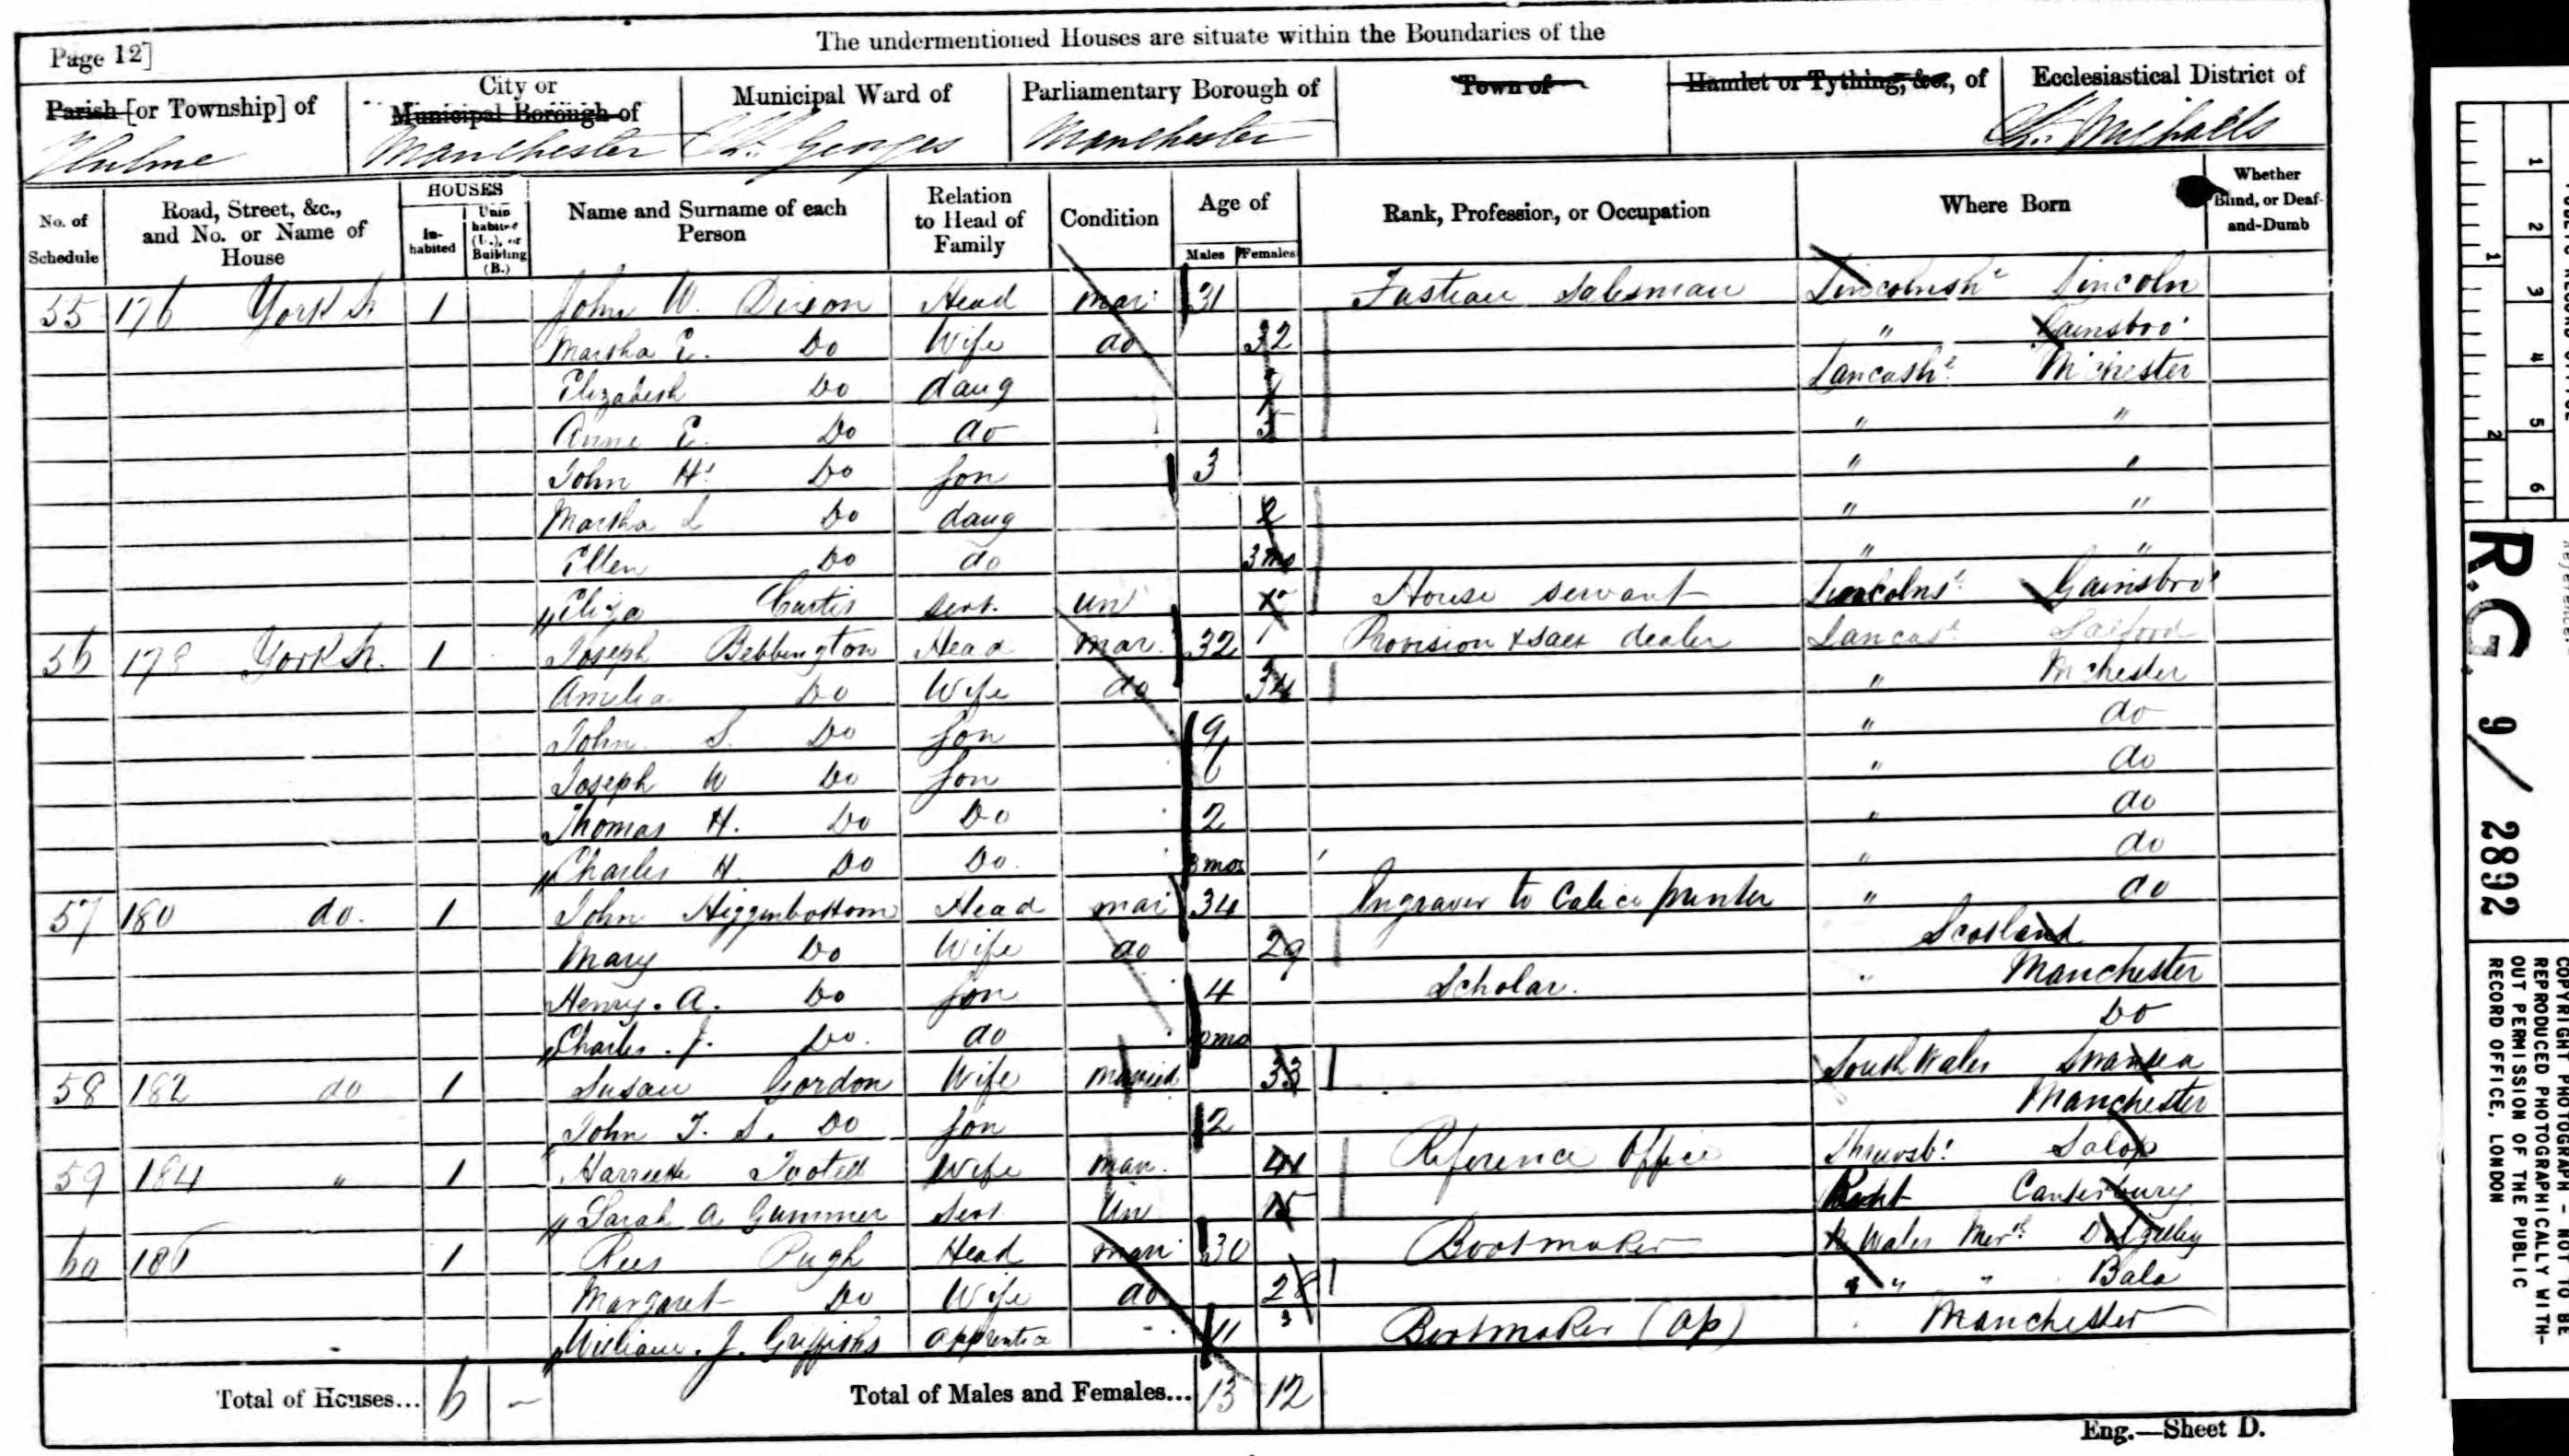 The undermentioned Houses are situate within the Boundaries of the
Page 12]
Parish [or Township] of
City or Municipal Borough of
Municipal Ward of
Parliamentary Borough of
Town of
Hamlet or Tything, &c., of
Ecclesiastical District of
Hulme Manchester St. Georges Manchester St. Michaels
No. of Schedule
Road, Street, &c., and No. or Name of House
HOUSES
In-habited
Uninhabited (U.), or Building (B.)
Name and Surname of each Person
Relation to Head of Family
Condition
Age of
Males Females
Rank, Profession, or Occupation
Where Born
Whether Blind, or Deaf-and-Dumb
55 176 York St 1 John W. Dixon Head mar 31 Fustian Salesman Lincolnsh Lincoln
Martha E. Do Wife do 32 " Gainsbro'
Elizabeth Do daug 7 Lancashe M'chester
Anne E. Do do 5 " "
John H. Do son 3 " "
Martha L Do daug 2 " "
Ellen Do do 3 mo " "
Eliza Curtis servt. un House servant Lincolns Gainsbro'
56 178 York St. 1 Joseph Bebbington Head mar. 32 Provision & dealer Lancas Salford
Amelia Do Wife do 34 " Mchester
John S. Do son 9 " do
Joseph W Do son " do
Thomas H. Do Do 2 " do
Charles H. Do Do. 3 mos " do
57 180 do. 1 John Higginbottom Head mar 34 Engraver to Calico printer " do
Mary Do Wife do 29 Scotland
Henry. A. Do son 4 Scholar. " Manchester
Charles. J. Do. do mo Do
58 182 do 1 Susan Gordon Wife married 33 South Wales Swansea
John T. S. Do son 2 Manchester
59 184 " 1 Tootell Wife mar. 41 Reference Office Shrewsb. Salop
Sarah A Gummer Servt Un 15 Kent Canterbury
60 186 1 Rees Pugh Head mar 30 Bootmaker N Wales Mer. Dolgelley
Margaret Do Wife do 28 " " " Bala
William. J. Griffiths Apprentice 11 Bootmaker (Ap) Manchester
Total of Houses... 6 –
Total of Males and Females... 13 12
Eng.—Sheet D.
1 2 3 4 5 6
1 2
R.G. 9/2892
COPYRIGHT PHOTOGRAPH - NOT TO BE
REPRODUCED PHOTOGRAPHICALLY WITH-
OUT PERMISSION OF THE PUBLIC
RECORD OFFICE, LONDON